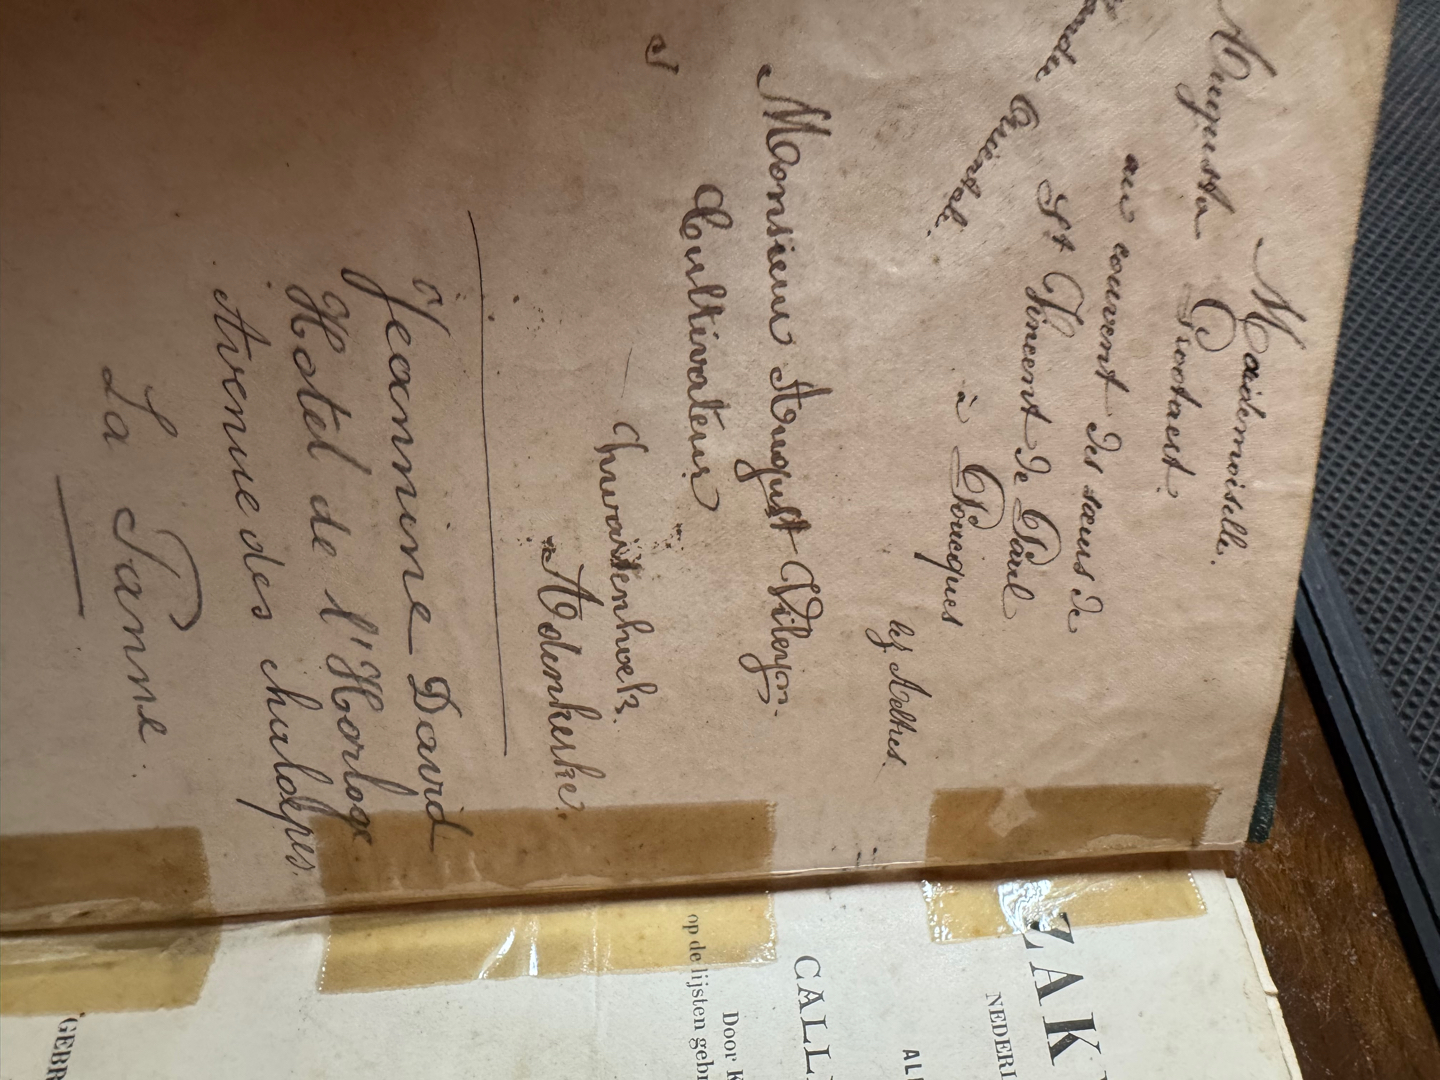 Maidemoiselle.
Augusta Prootaert.
au couvent des sœurs de
St Vincent de Paul
à Poucques
lez Aeltres.
Monsieur August Vileyn.
Cultivateur
Adenkerke.
à
Jeannine David
Hotel de l'Horloge
Avenue des chaloupes.
La Panne.
ZAK
NEDERL
AL
CALL
Door K
op de lijsten gebr
GEBR